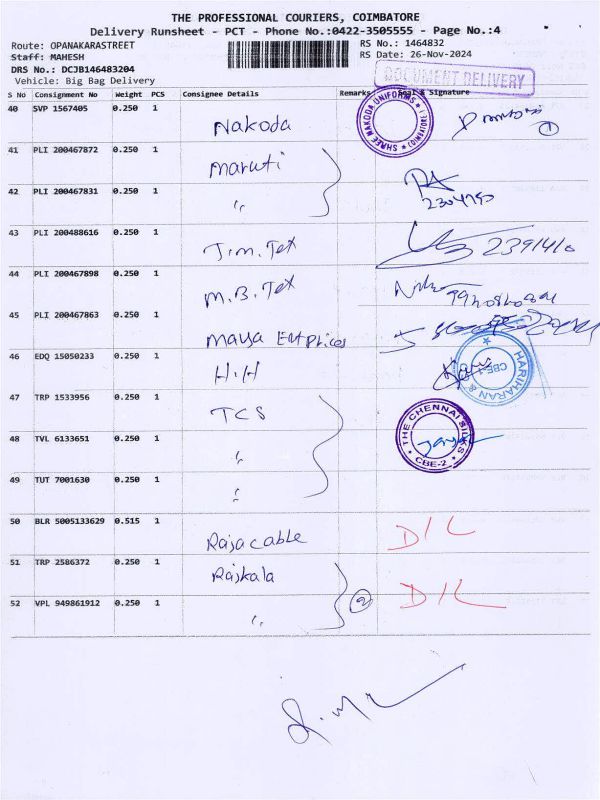 THE PROFESSIONAL COURIERS, COIMBATORE
Delivery Runsheet - PCT - Phone No.:0422-3505555 - Page No.:4
Route: OPANAKARASTREET
RS No.: 1464832
Staff: MAHESH
RS Date: 26-Nov-2024
DRS No.: DCJB146483204
Vehicle: Big Bag Delivery
DOCUMENT DELIVERY
S No Consignment No Weight PCS Consignee Details Remarks Seal & Signature
40 SVP 1567405 0.250 1 Nakoda
SHREE NAKODA UNIFORMS
41 PLI 200467872 0.250 1 Maruti
42 PLI 200467831 0.250 1 "
2304750
43 PLI 200488616 0.250 1 Jim. Tex
44 PLI 200467898 0.250 1 M.B. Tex
45 PLI 200467863 0.250 1 Maya Entprices
46 EDQ 15050233 0.250 1 H.H
HARIHARAN &
CBE-1
47 TRP 1533956 0.250 1 TCS
48 TVL 6133651 0.250 1 "
THE CHENNAI SILKS
CBE-2
49 TUT 7001630 0.250 1 "
50 BLR 5005133629 0.515 1 Rajacable D/L
51 TRP 2586372 0.250 1 Rajkala D/L
52 VPL 949861912 0.250 1 " 2